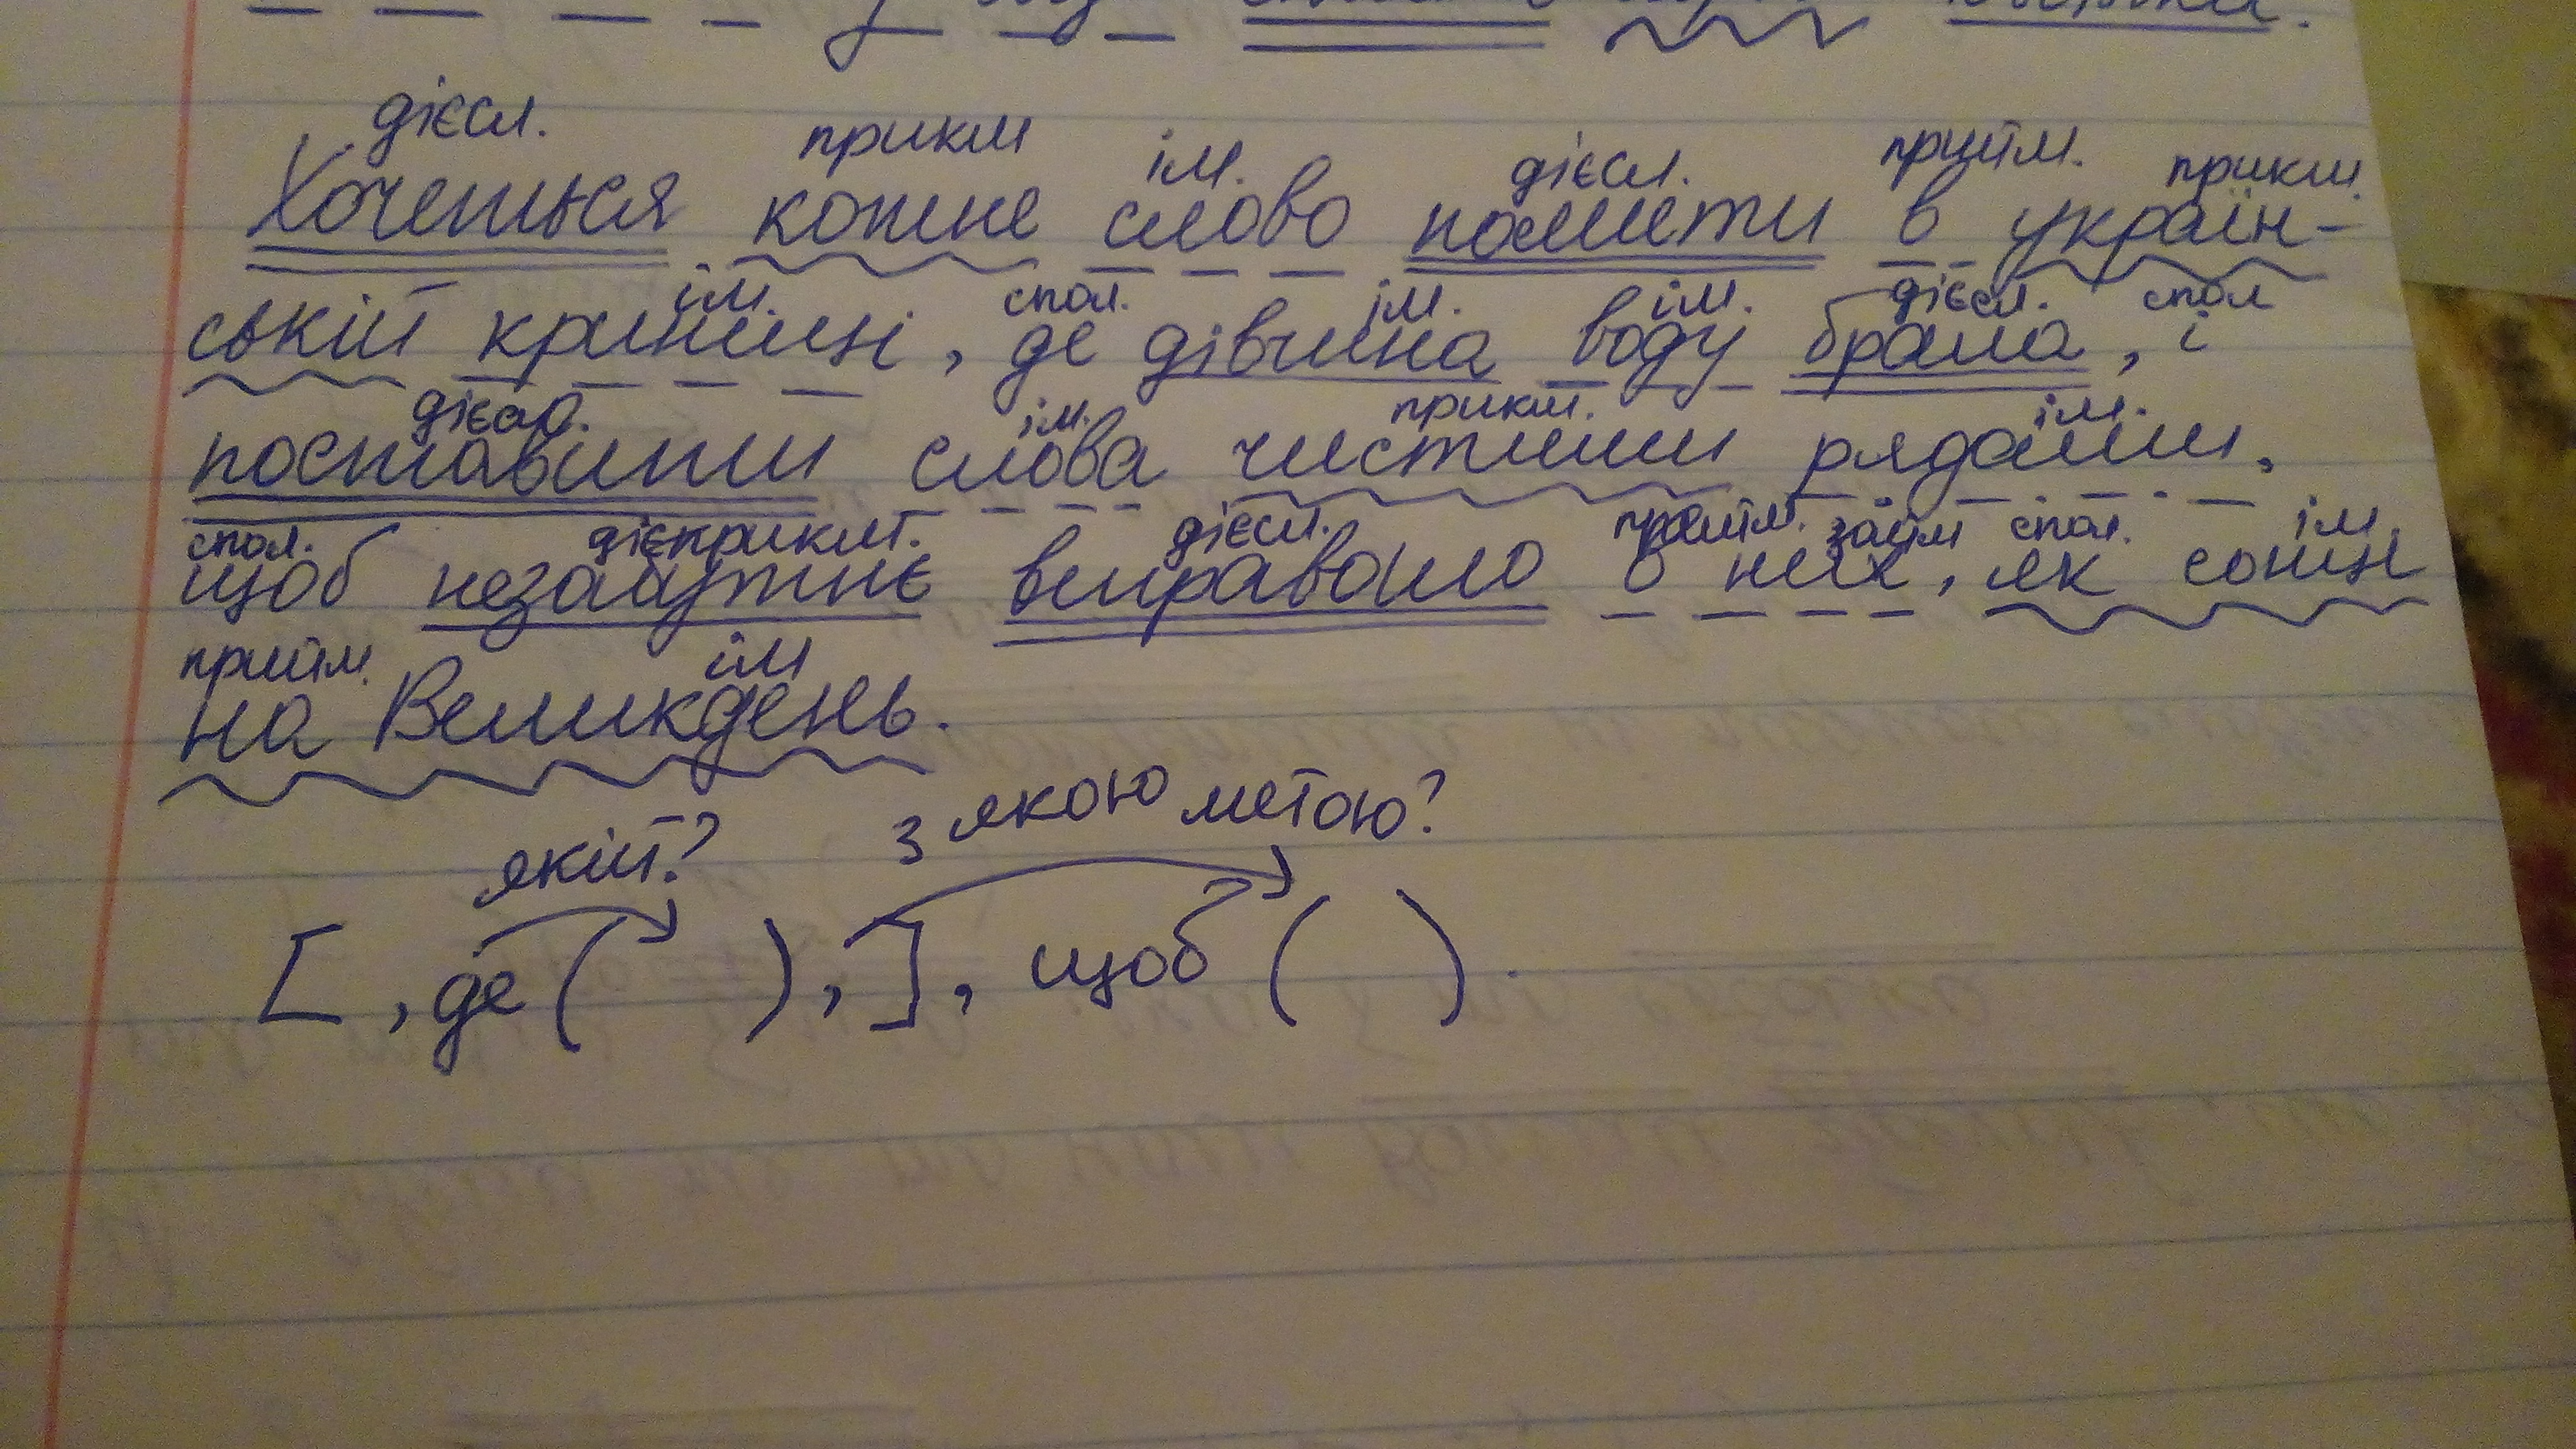 дієсл. прикм ім. дієсл. прийм. прикм.
Хочеться кожне слово помити в україн-
ім. спол. ім. ім. дієсл. спол
ській криниці, де дівчина воду брала, і
дієсл. ім. прикм. ім.
поставити слова чистими рядами,
спол. дієприкмт. дієсл. прийм. займ спол. ім.
щоб незабутнє вигравало в них, як сонце
прийм. ім
на Великдень.
якій? з якою метою?
[ , де ( ), ], щоб ( ).